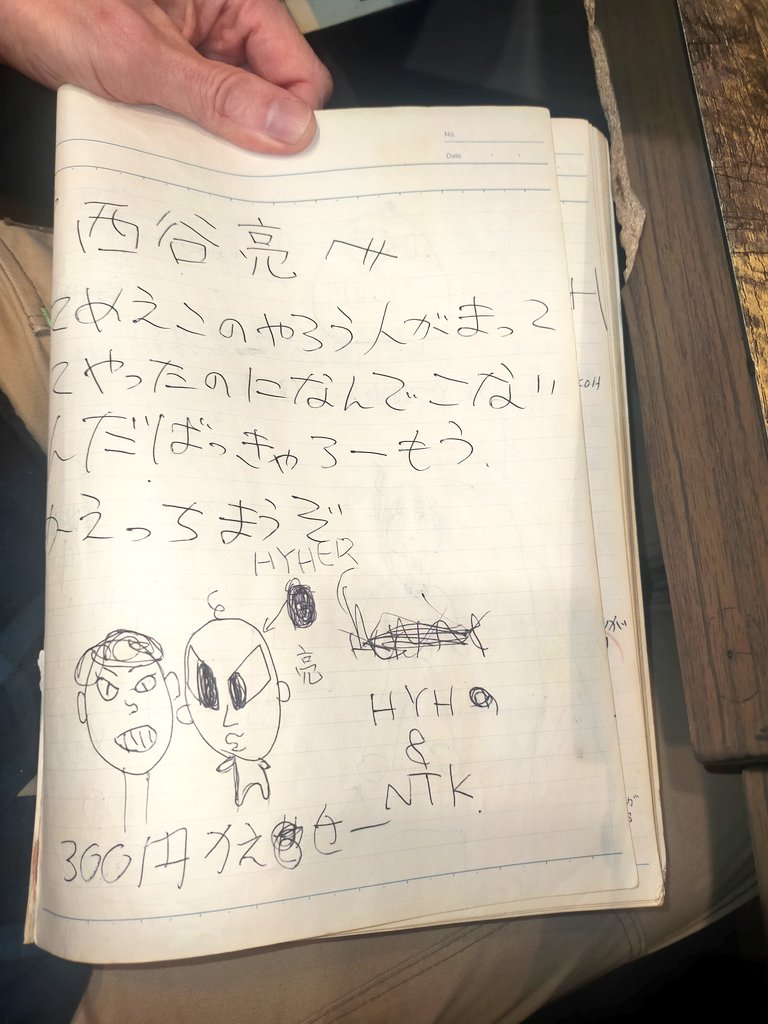 No
Date
西谷亮
てめえこのやろう人がまって
てやったのになんでこない
んだばっきゃろーもう.
かえっちまうぞ
HYHER
亮
HYH
&
NTK.
300円かえせー